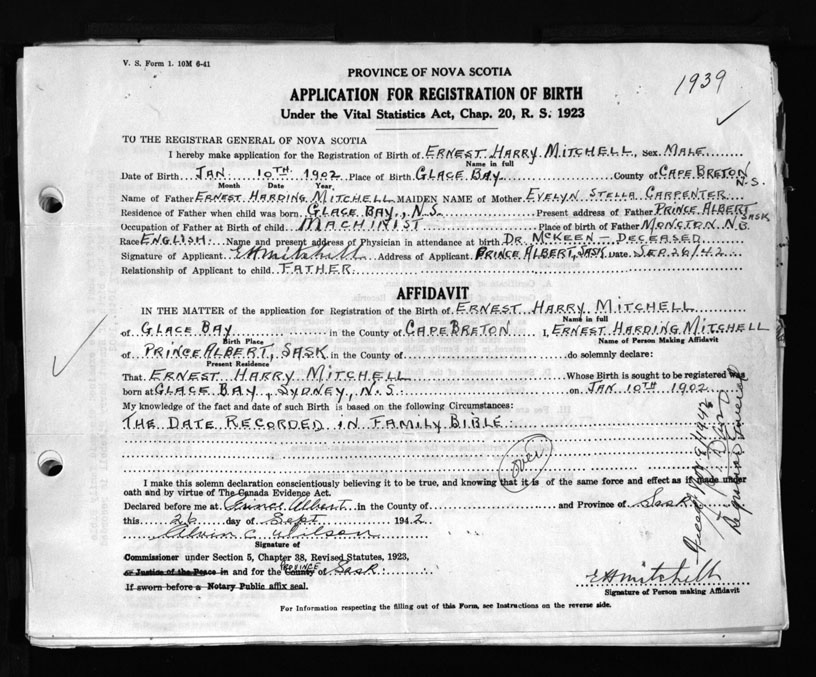 V. S. Form 1. 10M 6-41
1939
PROVINCE OF NOVA SCOTIA
APPLICATION FOR REGISTRATION OF BIRTH
Under the Vital Statistics Act, Chap. 20, R. S. 1923
TO THE REGISTRAR GENERAL OF NOVA SCOTIA
I hereby make application for the Registration of Birth of ERNEST HARRY MITCHELL, Sex MALE
Name in full
Date of Birth JAN. 10TH. 1902 Place of Birth GLACE BAY County of CAPE BRETON N.S.
Month Date Year
Name of Father ERNEST HARDING MITCHELL MAIDEN NAME of Mother EVELYN STELLA CARPENTER
Residence of Father when child was born GLACE BAY, N.S. Present address of Father PRINCE ALBERT SASK
Occupation of Father at Birth of child MACHINIST Place of birth of Father MONCTON N.B.
Race ENGLISH. Name and present address of Physician in attendance at birth DR. MCKEEN - DECEASED
Signature of Applicant EHMitchell Address of Applicant PRINCE ALBERT, SASK Date SEP 26/42
Relationship of Applicant to child FATHER
AFFIDAVIT
IN THE MATTER of the application for Registration of the Birth of ERNEST HARRY MITCHELL
Name in full
of GLACE BAY in the County of CAPE BRETON I, ERNEST HARDING MITCHELL
Birth Place Name of Person Making Affidavit
of PRINCE ALBERT, SASK in the County of do solemnly declare:
Present Residence
That ERNEST HARRY MITCHELL Whose Birth is sought to be registered was
born at GLACE BAY, SYDNEY, N.S. on JAN 10TH 1902
My knowledge of the fact and date of such Birth is based on the following Circumstances:
THE DATE RECORDED IN FAMILY BIBLE
over
I make this solemn declaration conscientiously believing it to be true, and knowing that it is of the same force and effect as if made under
oath and by virtue of The Canada Evidence Act.
Declared before me at Prince Albert in the County of and Province of Sask
this 26 day of Sept 1942
Alvin C Wilson
Signature of
Commissioner under Section 5, Chapter 38, Revised Statutes, 1923,
or Justice of the Peace in and for the County PROVINCE of Sask
If sworn before a Notary Public affix seal.
EHMitchell
Signature of Person making Affidavit
For Information respecting the filling out of this Form, see Instructions on the reverse side.
Nov 9/1942
Registrar General